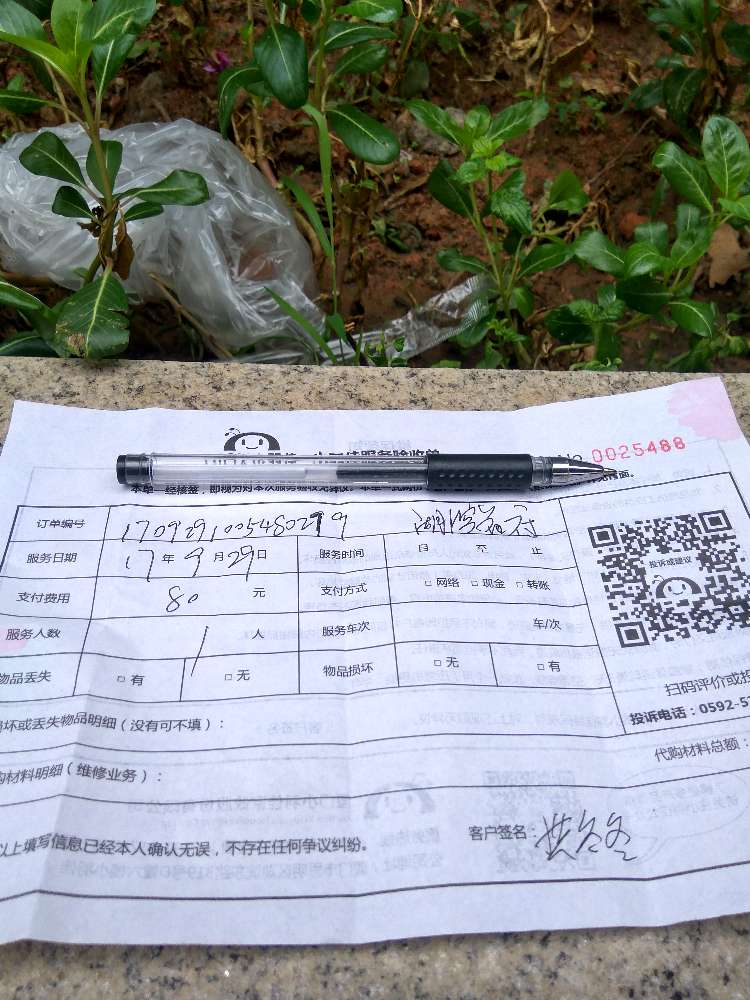 服务验收单
No 0025488
本单一经核签，即视为对本次服务验收无异议。
订单编号 1709291005480299
服务日期 17年9月29日 服务时间 月 至 止
支付费用 80 元 支付方式 □网络 □现金 □转账
服务人数 1 人 服务车次 车/次
物品丢失 □有 □无 物品损坏 □无 □有
投诉或建议
扫码评价或投
投诉电话：0592-5
损坏或丢失物品明细（没有可不填）：
代购材料总额：
购材料明细（维修业务）：
以上填写信息已经本人确认无误，不存在任何争议纠纷。
客户签名：